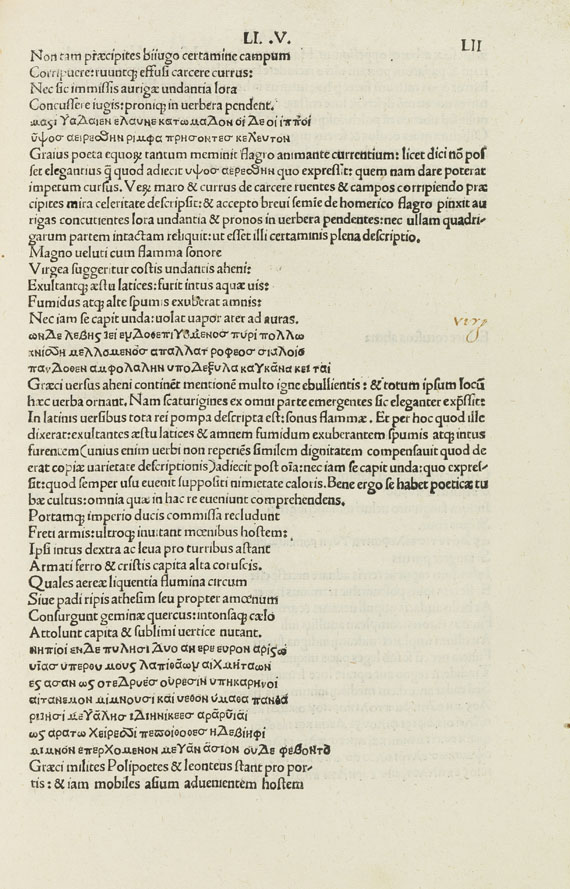 LI. .V.
LII
Non tam præcipites biiugo certamine campum
Corripuere:ruuntqꝫ effusi carcere currus:
Nec sic immissis aurigæ undantia lora
Concussere iugis:proniqꝫ in uerbera pendent.
ὕψοσ αειρεσθην ριμφα πρησοντεσ κελευτον
Graius poeta equoꝝ tantum meminit flagro animante currentium: licet dici nõ pos
set elegantius q̃ quod adiecit υψοσ αερεσθην quo expressit: quem nam dare poterat
impetum cursus. Veꝝ maro & currus de carcere ruentes & campos corripiendo præ
cipites mira celeritate descripsit: & accepto breui semie de homerico flagro pinxit au
rigas concutientes lora undantia & pronos in uerbera pendentes: nec ullam quadri-
garum partem intactam reliquit: ut esset illi certaminis plena descriptio.
Magno ueluti cum flamma sonore
Virgea suggeritur costis undantis aheni:
Exultantqꝫ æstu latices: furit intus aquæ uis:
Fumidus atqꝫ alte spumis exuberat amnis:
Nec iam se capit unda: uolat uapor ater ad auras.
ωσΔε λεβης
πυρι πολλω
κνισθη μελλομενοσ απαλλατ ροφεοσ σιαλοιο
παντοθεν αμφολαλην υποΔεξυλα καυκανα κειται
Græci uersus aheni continẽt mentionẽ multo igne ebullientis : & totum ipsum locũ
hæc uerba ornant. Nam scaturigines ex omni parte emergentes sic eleganter exp̃ssit:
In latinis uersibus tota rei pompa descripta est: sonus flammæ. Et per hoc quod ille
dixerat: exultantes æstu latices & amnem fumidum exuberantem spumis atqꝫ intus
furentem(unius enim uerbi non reperiẽs similem dignitatem compensauit quod de
erat copiæ uarietate descriptionis)adiecit post oĩa: nec iam se capit unda: quo expres-
sit: quod semper usu euenit suppositi nimietate caloris. Bene ergo se habet poeticæ tu
bæ cultus: omnia quæ in hac re eueniunt comprehendens.
Portamqꝫ imperio ducis commissa recludunt
Freti armis: ultroqꝫ inuitant mœnibus hostem:
Ipsi intus dextra ac leua pro turribus astant
Armati ferro & cristis capita alta coruscis.
Quales aereæ liquentia flumina circum
Siue padi ripis athesim seu propter amœnum
Consurgunt geminæ quercus: intonsaqꝫ cælo
Attolunt capita & sublimi uertice nutant.
νηπιοι ενΔε πυλησι Δυο ανερε ευρον αριςω
υἱασ υπερυ μους λαπιθαων αιχμηταων
ες ασαν ως οτε Δρυές ουρεσιν υπηκαρηνοι
ριζησι μεγαλησ ιΔιηνικεες αραρυιαι
ως αρατω χειρεσσι πεποιθοσεσ ηΔεβιηφι
μιμνον επερχομενον μεγαν ασιον ουΔε φεβοντο
Græci milites Polipoetes & leonteus stant pro por-
tis : & iam mobiles asium aduenientem hostem